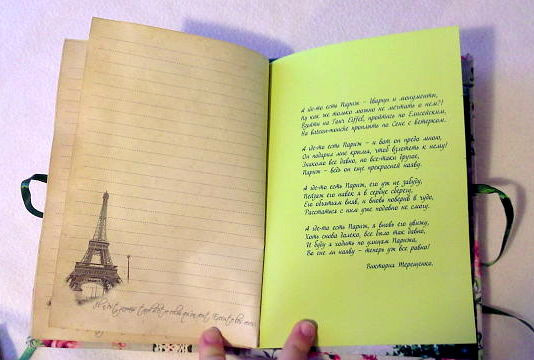 А где-то есть Париж – дворцы и монументы,
Ну как же только можно не мечтать о нём?!
Взойти на Tour Eiffel, пройтись по Елисейским,
На бато-муше проплыть по Сене с ветерком.
А где-то есть Париж – и вот он предо мною,
Он подарил мне крылья, чтоб взлететь к нему!
Знакомо всё давно, но всё-таки другое,
Париж – ведь он ещё прекрасней наяву.
А где-то есть Париж, его уж не забуду,
Пейзаж его навек я в сердце сберегу,
Его объятиям вняв, и вновь поверив в чудо,
Расстаться с ним уже подавно не смогу.
А где-то есть Париж, я вновь его увижу,
Хоть снова далеко, всё было так давно,
И буду я ходить по улицам Парижа,
Во сне ли наяву – теперь уж всё равно!
Виктория Терещенко.